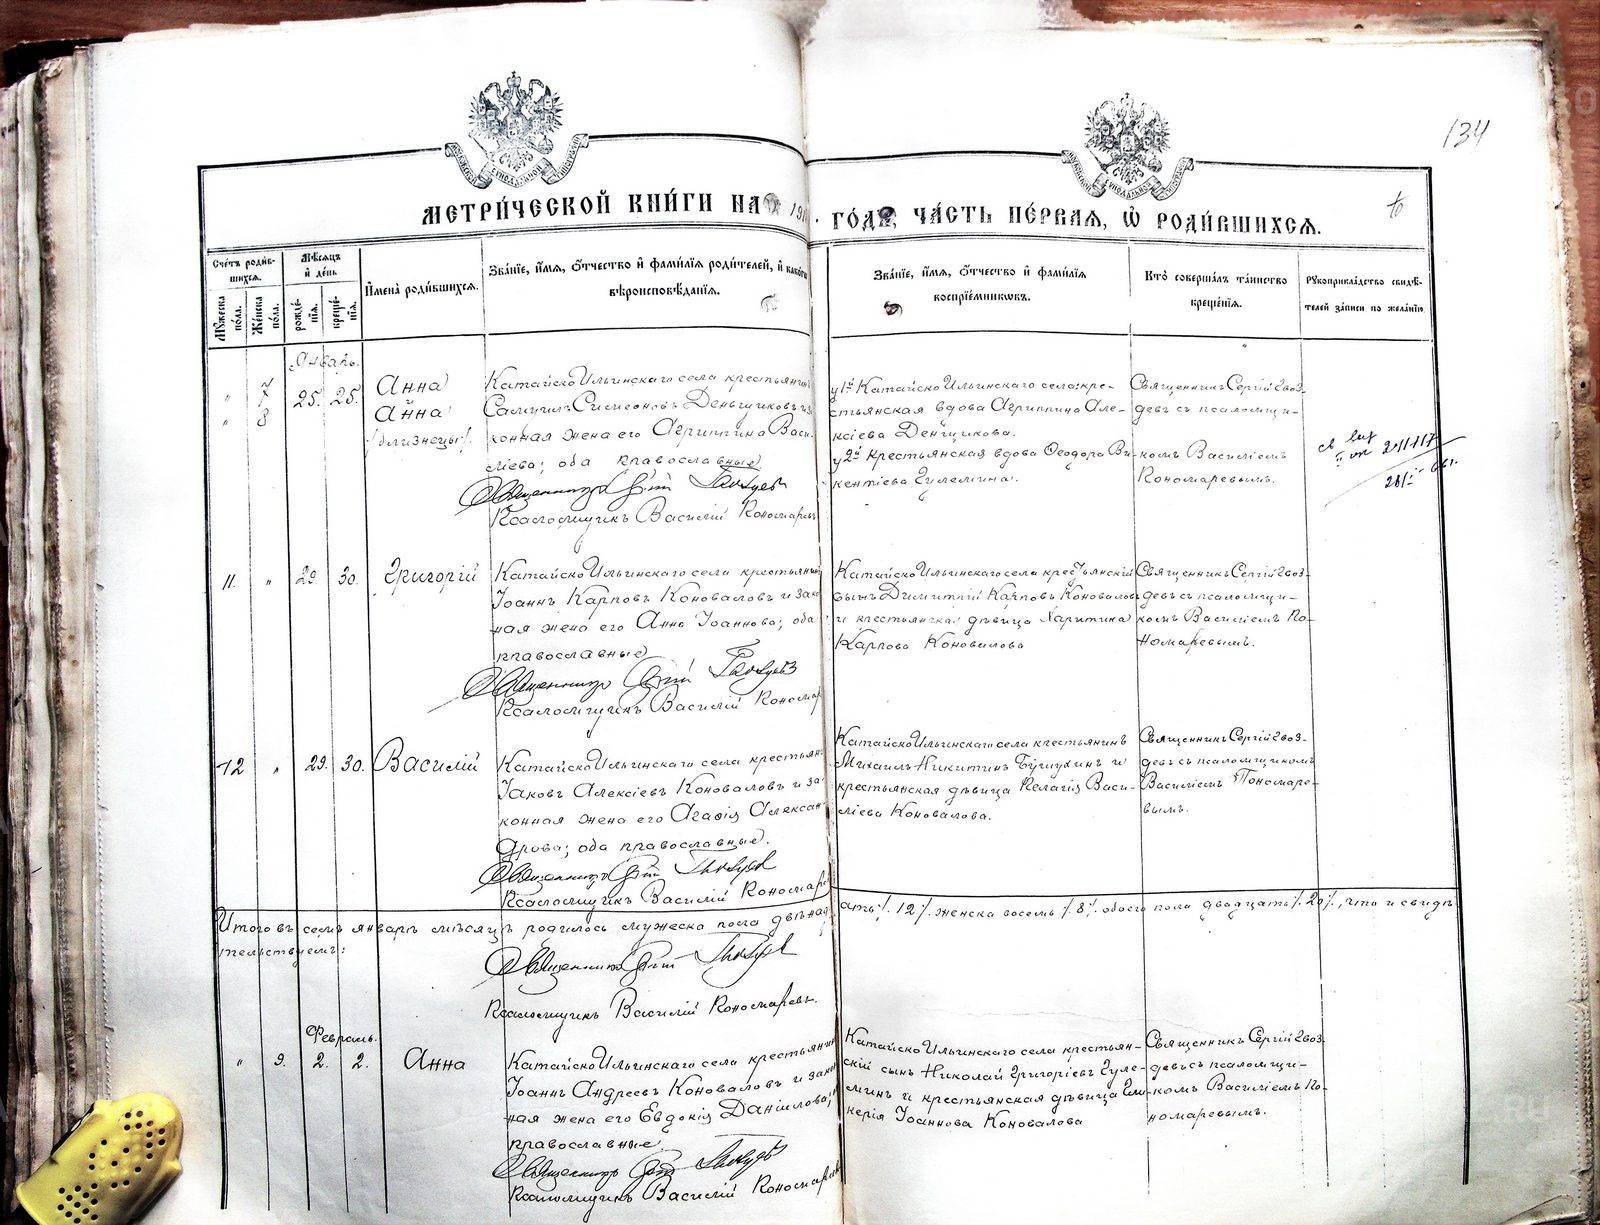 134
МОСКОВСКОЙ СѴНОДАЛЬНОЙ ТИПОГРАФІИ
СѴНОДАЛЬНОЙ
МЕТРИ́ЧЕСКОЙ КНИ́ГИ НА 191 ГО́ДЪ, ЧА́СТЬ ПЕ́РВАЯ, Ѡ РОДИ́ВШИХСЯ.
Сче́тъ роди́вшихся.
Му́жеска по́ла.
Же́нска по́ла.
Мѣ́сяцъ и де́нь
рожде́нія.
креще́нія.
И́мена роди́вшихся.
Зва́ніе, и́мя, о́тчество и фами́лія роди́телей, и како́го
вѣроисповѣ́данія.
Зва́ніе, и́мя, о́тчество и фами́лія
воспріе́мниковъ.
Кто̀ соверша́лъ та́инство
креще́нія.
Рукоприкла́дство свидѣ́-
телей за́писи по жела́нію.
Январь.
" 7 25. 25. Анна
" 8 Анна
/близнецы/.
Катайско Ильинскаго села крестьянинъ
Самуилъ Симеоновъ Деньщиковъ и за
конная жена его Агриппина Васи
ліева; оба православные
Священникъ Сергій Гвоздевъ
Псаломщикъ Василій Пономаревъ
у 1й Катайско Ильинскаго села кре-
стьянская вдова Агриппина Але-
ксіева Денщикова.
у 2й Крестьянская вдова Ѳеодора Ви-
кентіева Гулемина.
Священникъ Сергій Гвоз-
девъ съ псаломщи-
комъ Василіемъ
Пономаревымъ.
11. " 29 30. Григорій
Катайско Ильинскаго села крестьянинъ
Іоаннъ Карповъ Коноваловъ и закон
ная жена его Анна Іоаннова; оба
православные
Священникъ Сергій Гвоздевъ
Псаломщикъ Василій Пономар
Катайско Ильинскаго села крестьянскій
сынъ Димитрій Карповъ Коноваловъ
и крестьянская дѣвица Харитина
Карпова Коновалова
Священникъ Сергій Гвоз-
девъ съ псаломщи-
комъ Василіемъ По-
номаревымъ.
12 " 29. 30. Василій
Катайско Ильинскаго села крестьян
Іаковъ Алексіевъ Коноваловъ и за
конная жена его Агафія Алексан
дрова; оба православные.
Священникъ Сергій Гвоздевъ
Псаломщикъ Василій Пономарев
Катайско Ильинскаго села крестьянинъ
Михаилъ Никитинъ и
крестьянская дѣвица Пелагія Васи-
ліева Коновалова.
Священникъ Сергій Гвоз-
девъ съ псаломщикомъ
Василіемъ Пономаре-
вымъ.
Итого въ семъ январѣ мѣсяцѣ родилось мужеска пола двѣнад
ать /. 12 /. женска восемь /. 8 /. обоего пола двадцать /. 20 /., что и свидѣ
тельствуемъ:
Священникъ Сергій Гвоздевъ
Псаломщикъ Василій Пономаревъ.
Февраль.
" 9. 2. 2. Анна
Катайско Ильинскаго села крестьянин
Іоаннъ Андреевъ Коноваловъ и закон
ная жена его Евдокія Даніилова;
православные
Священникъ Сергій Гвоздевъ
Псаломщикъ Василій Пономарев
Катайско Ильинскаго села крестьян-
скій сынъ Николай Григоріевъ Гуле-
минъ и крестьянская дѣвица Гли-
керія Іоаннова Коновалова
Священникъ Сергій Гвоз
девъ съ псаломщи-
комъ Василіемъ По-
номаревымъ.